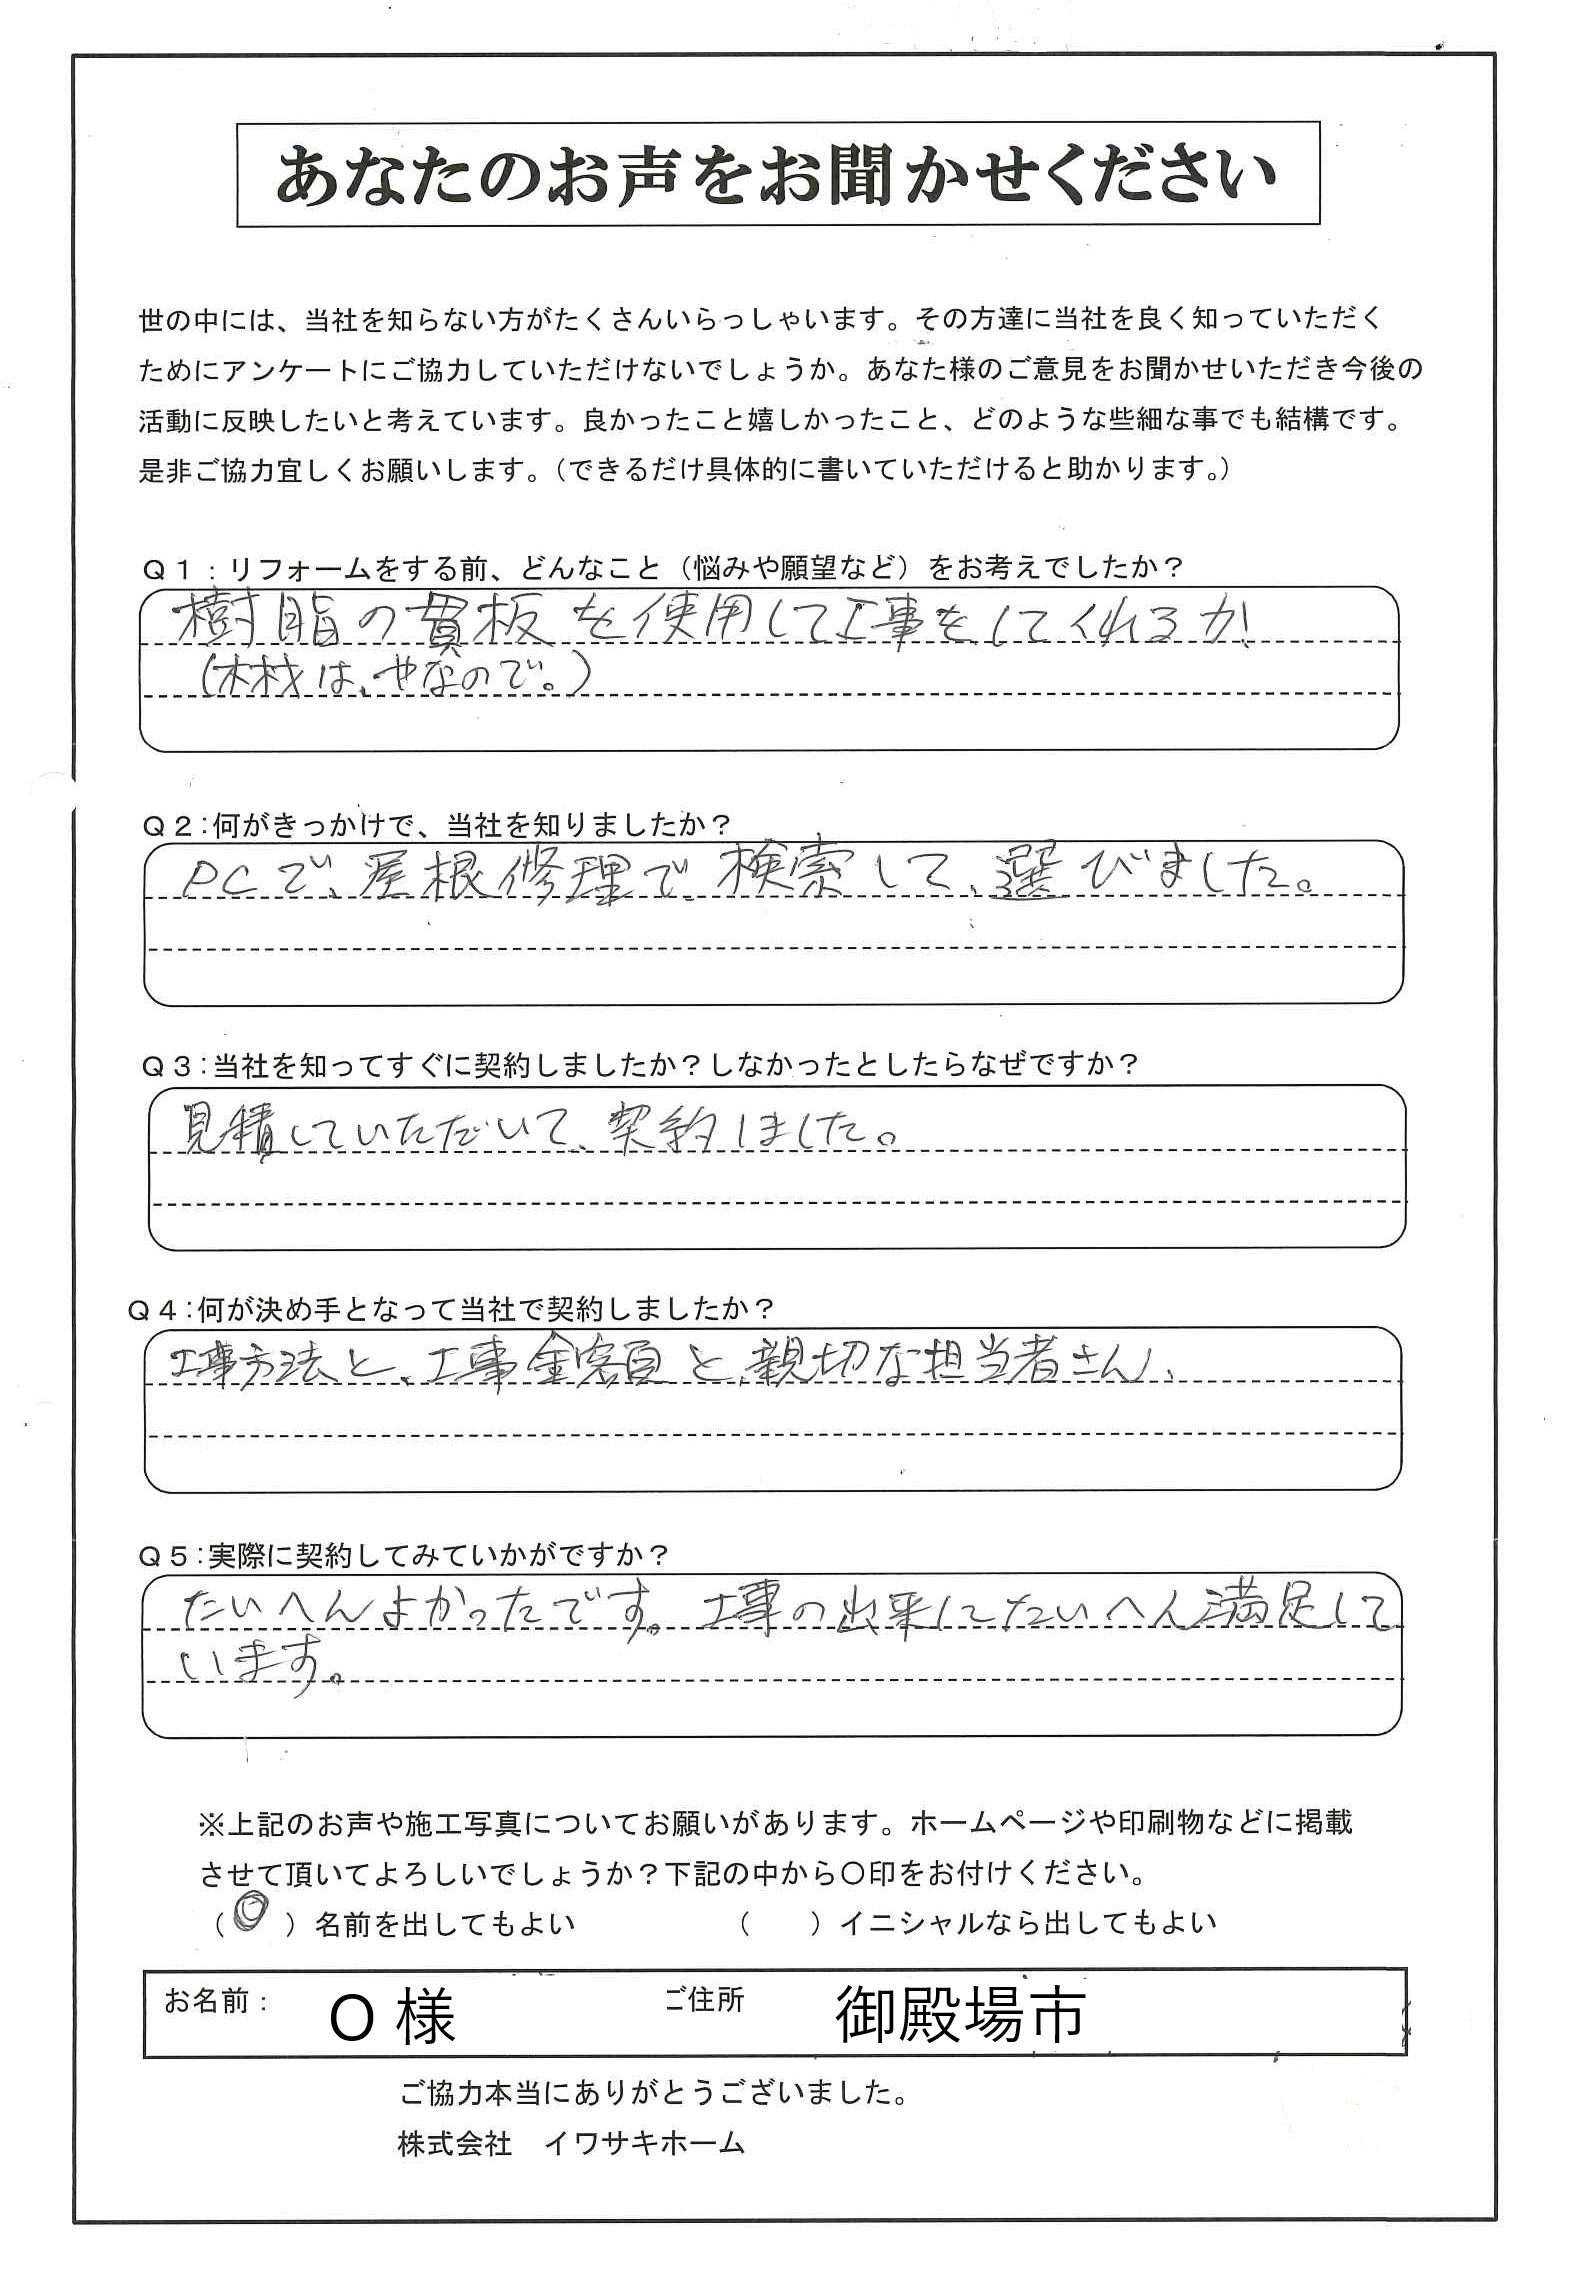 あなたのお声をお聞かせください
世の中には、当社を知らない方がたくさんいらっしゃいます。その方達に当社を良く知っていただく
ためにアンケートにご協力していただけないでしょうか。あなた様のご意見をお聞かせいただき今後の
活動に反映したいと考えています。良かったこと嬉しかったこと、どのような些細な事でも結構です。
是非ご協力宜しくお願いします。（できるだけ具体的に書いていただけると助かります。）
Ｑ１：リフォームをする前、どんなこと（悩みや願望など）をお考えでしたか？
樹脂の貫板を使用して工事をしてくれるか
(木材は、やなので。)
Ｑ２：何がきっかけで、当社を知りましたか？
PCで、屋根修理で検索して、選びました。
Ｑ３：当社を知ってすぐに契約しましたか？しなかったとしたらなぜですか？
見積していただいて、契約しました。
Ｑ４：何が決め手となって当社で契約しましたか？
工事方法と、工事金額と、親切な担当者さん、
Ｑ５：実際に契約してみていかがですか？
たいへんよかったです。工事の出来してたいへん満足して
います。
※上記のお声や施工写真についてお願いがあります。ホームページや印刷物などに掲載
させて頂いてよろしいでしょうか？下記の中から〇印をお付けください。
（◎）名前を出してもよい　（　　）イニシャルなら出してもよい
お名前： O 様　ご住所　御殿場市
ご協力本当にありがとうございました。
株式会社　イワサキホーム